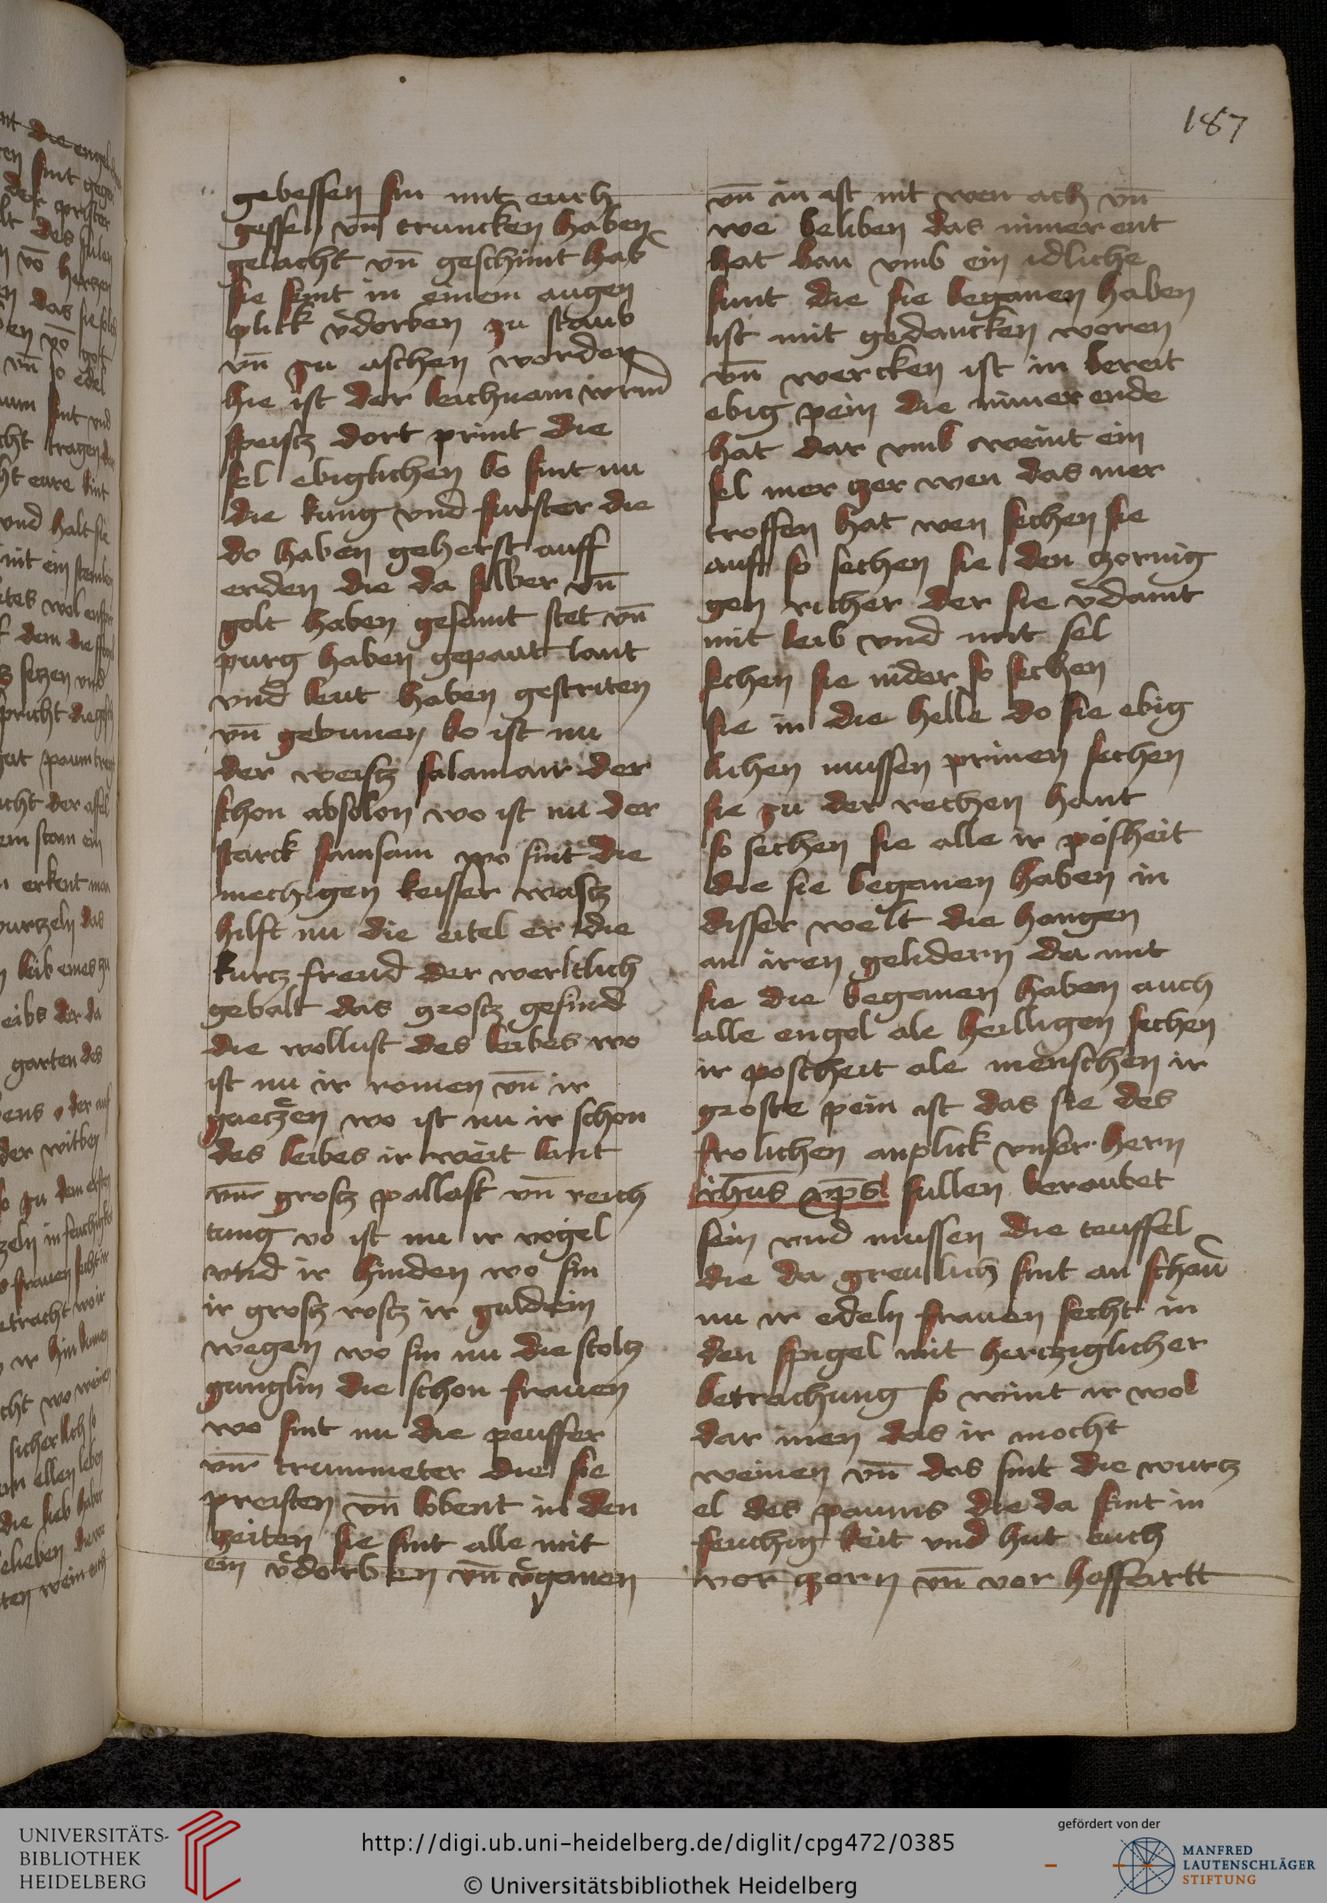 187
gebessen sin mit euch
gessen vn̄ truncken haben
gelacht vn̄ geschimt hab
sie sint in einem augen
plick v̄dorben zu staub
vn̄ zu aschen worden
hie ist der leichnam wrm̄
speisz dort print die
sel ebiglichen bo sint nu
die kung vnd furster die
do haben geherst auff
erden die da silber vn̄
golt haben gesamt stet vn̄
purg haben gepaut lant
vnd leut haben gestriten
vn̄ gebunen bo ist nu
der weisz salamair der
schon absolon wo ist nu der
starck samsam wo sint die
mechigen keisser wasz
hilft nu die eitel er die
kurcz freud der werltlich
gebalt das grosz gesind
die wollust des leibes wo
ist nu ir romen vn̄ ir
gaetzen wo ist nu ir schon
des leibes ir weit lant
vn̄ grosz pallast vn̄ reich
tung vo ist nu ir vogel
vnd ir hinden wo sin
ir grosz rosz ir guldein
wegen wo sin nu die stolcz
gunglin die schon frauen
wo sint nu die peusser
vn̄ trummeter die sie
preisten vn̄ lobent in den
zeiten sie sint alle mit
ein v̄dorben vn̄ v̄gannen
vn̄ in ist nit wen ach vn̄
we beliben das nimer ent
hat ban vmb ein idliche
sunt die sie begannen haben
ist mit gedancken woren
vn̄ wercken ist in bereit
ebig pein die nimer ende
hat dar vmb weint ein
sel mer zer wen das mer
troffen hat wen sechen sie
auff so sechen sie den zornig
gen richer der sie v̄damt
mit leib vnd mit sel
sechen sie nider so sechen
sie in die helle do sie ebig
lichen mussen prinen sechen
sie zu der rechen hant
so sechen sie alle ir posheit
die sie begannen haben in
disser welt die hangen
an iren gelidern da mit
sie die begannen haben auch
alle engel ale heilligen sechen
ir poscheit ale menschen ir
groste pein ist das sie des
frolichen anplick vnser hern
ih̄us xp̄s sullen beraubet
sein vnd mussen die teuffel
die da greulich sint an schau̅
nu ir edeln frauen secht in
den spigel mit hercziglicher
betrachung so wint ir wol
dar inen das ir mocht
weinen vn̄ das sint die wurcz
el des paums die da sint in
feuchig keit vnd hut euch
vor zorn vn̄ vor hoffartt
UNIVERSITÄTS-
BIBLIOTHEK
HEIDELBERG
http://digi.ub.uni-heidelberg.de/diglit/cpg472/0385
© Universitätsbibliothek Heidelberg
gefördert von der
MANFRED
LAUTENSCHLÄGER
STIFTUNG